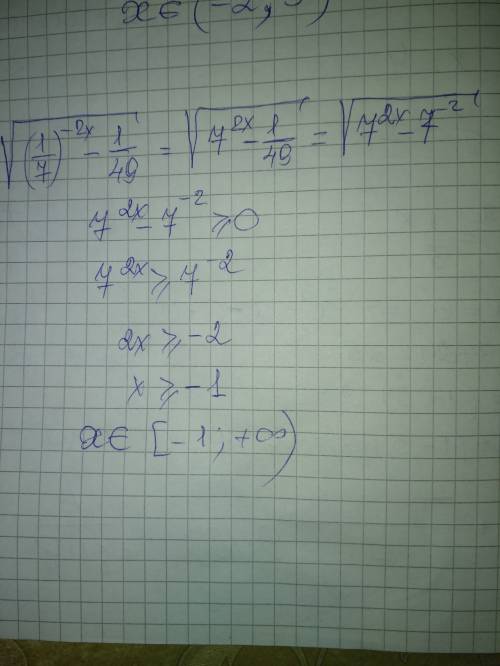 x ∈ (-2;
√((1/7)^(-2x) - 1/49) = √(7^(2x) - 1/49) = √(7^(2x) - 7^(-2))
7^(2x) - 7^(-2) ⩾ 0
7^(2x) ⩾ 7^(-2)
2x ⩾ -2
x ⩾ -1
x ∈ [-1; +∞)